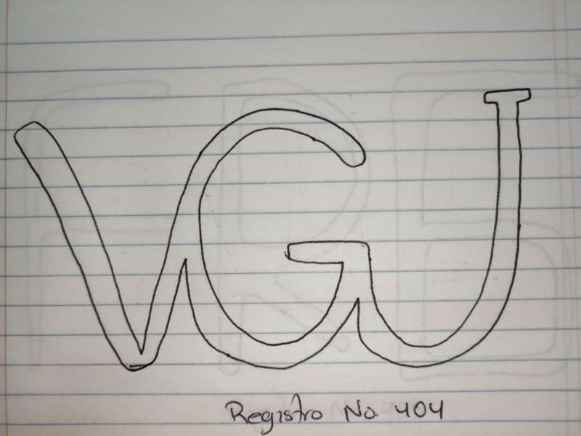 VGJ
Registro No 404